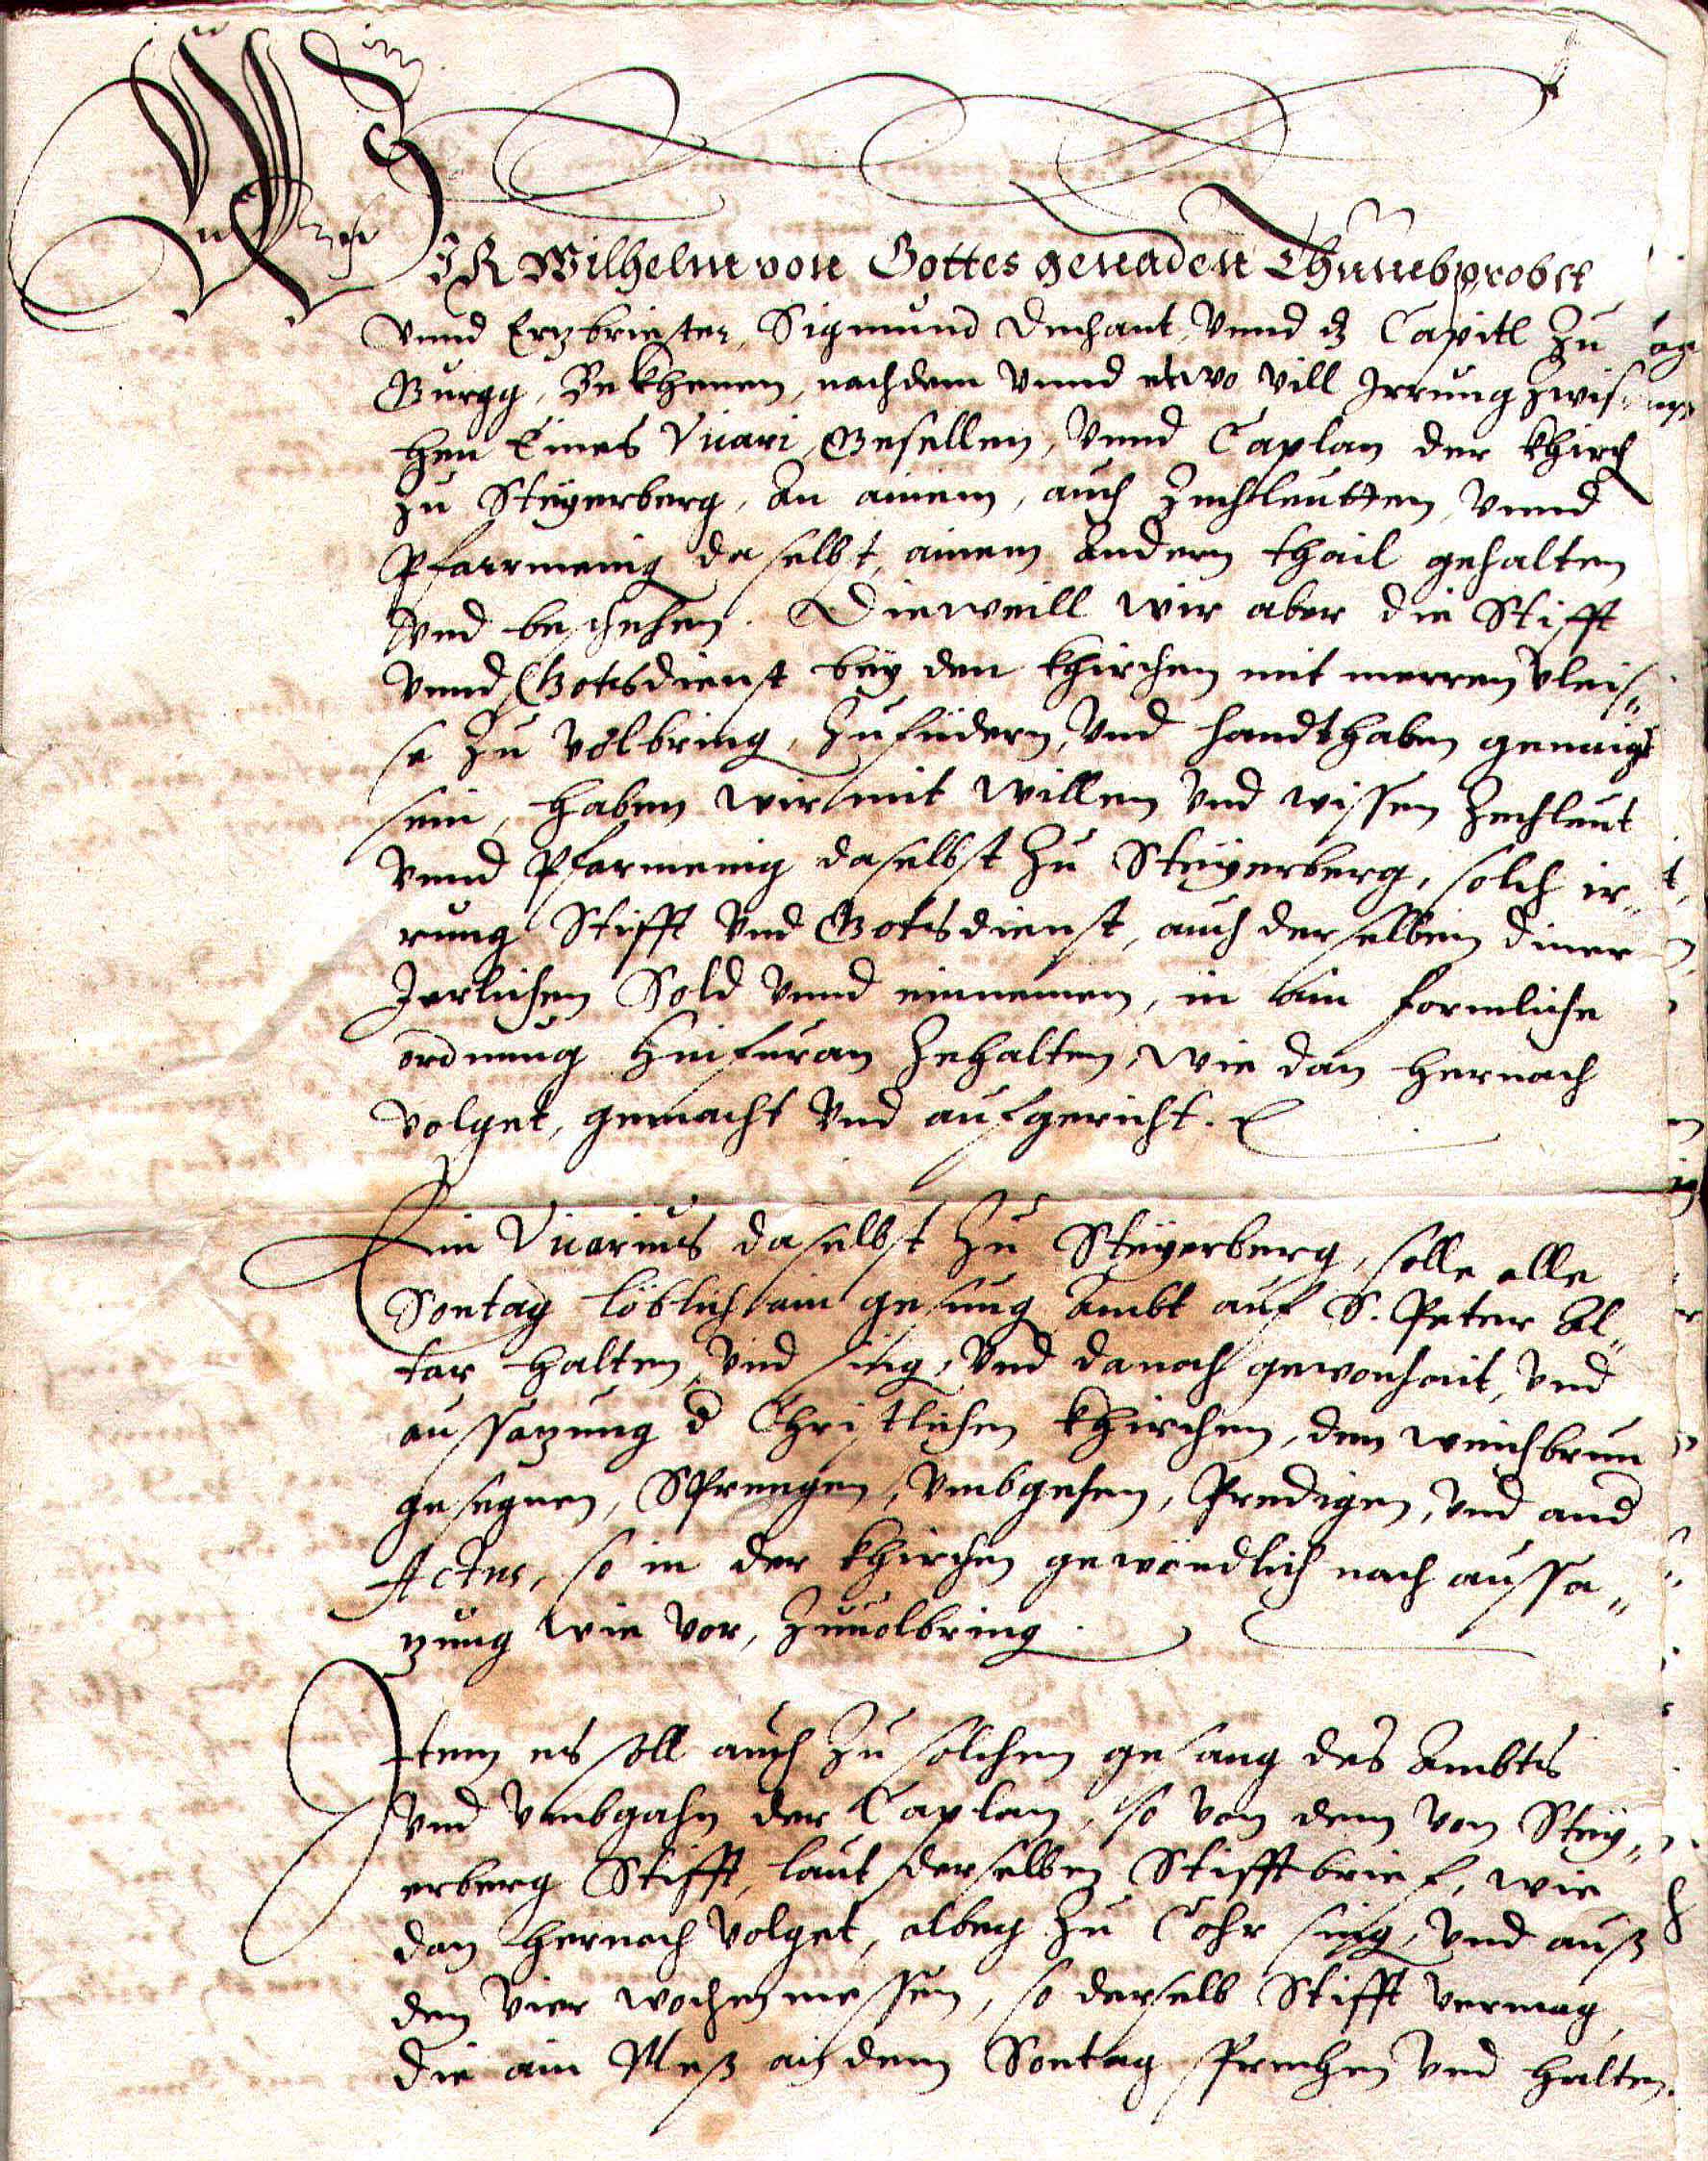 WIR Wilhelm von Gottes genaden Thumbprobst
vnnd Ertzbriester, Sigmund Dechant, vnnd dz Capitl zu
Gurgg, Bekhennen, nachdem vnnd etwo vill Irrung zwisc
hen Eines Vicari, Gesellen, vnnd Caplan der khirch
zu Steyerberg, an ainem, auch Zechleutten, vnnd
Pfarrmenig daselbst, ainem andern thail gehalten
vnd beschehen. Dieweill wir aber die Stifft
vnnd Gotsdienst bey den khirchen mit merren vleis„
se zu volbring, zufüdern, vnd handthaben genaigt
sein, haben wir mit willen vnd wissen Zechleut
vnnd Pfarmenig daselbst zu Steyerberg, solch ir„
rung Stifft vnd Gotsdienst, auch derselben diener
Jerlichen Sold vnnd einnemen, in ain formliche
ordnung hinfuran zehalten, wie dan hernach
volget, gemacht vnd aufgericht.
Ein Vicarius daselbst zu Steyerberg, solle alle
Sontag löblich ain gesung Ambt auf S. Peter Al„
tar halten vnd sing, vnd danach gewonhait, vnd
aussatzung d Christlichen khirchen, den weichbrun
gesegnen, Sprengen, vmbgehen, Predigen, vnd and
Actus, so in der khirchen gewöndlich nach aussa„
tzung wie vor, zuuolbring.
Item es soll auch zu solchem gesang des Ambts
vnd vmbgahn der Caplan, so von dem von Stey„
erberg Stifft, laut derselben Stifftbrief, wie
dan hernach volget, albeg zu Cohr sing, vnd auß
den vier wochenmessen, so derselb Stifft vermag,
die ain Meß an dem Sontag sprechen vnd halten.